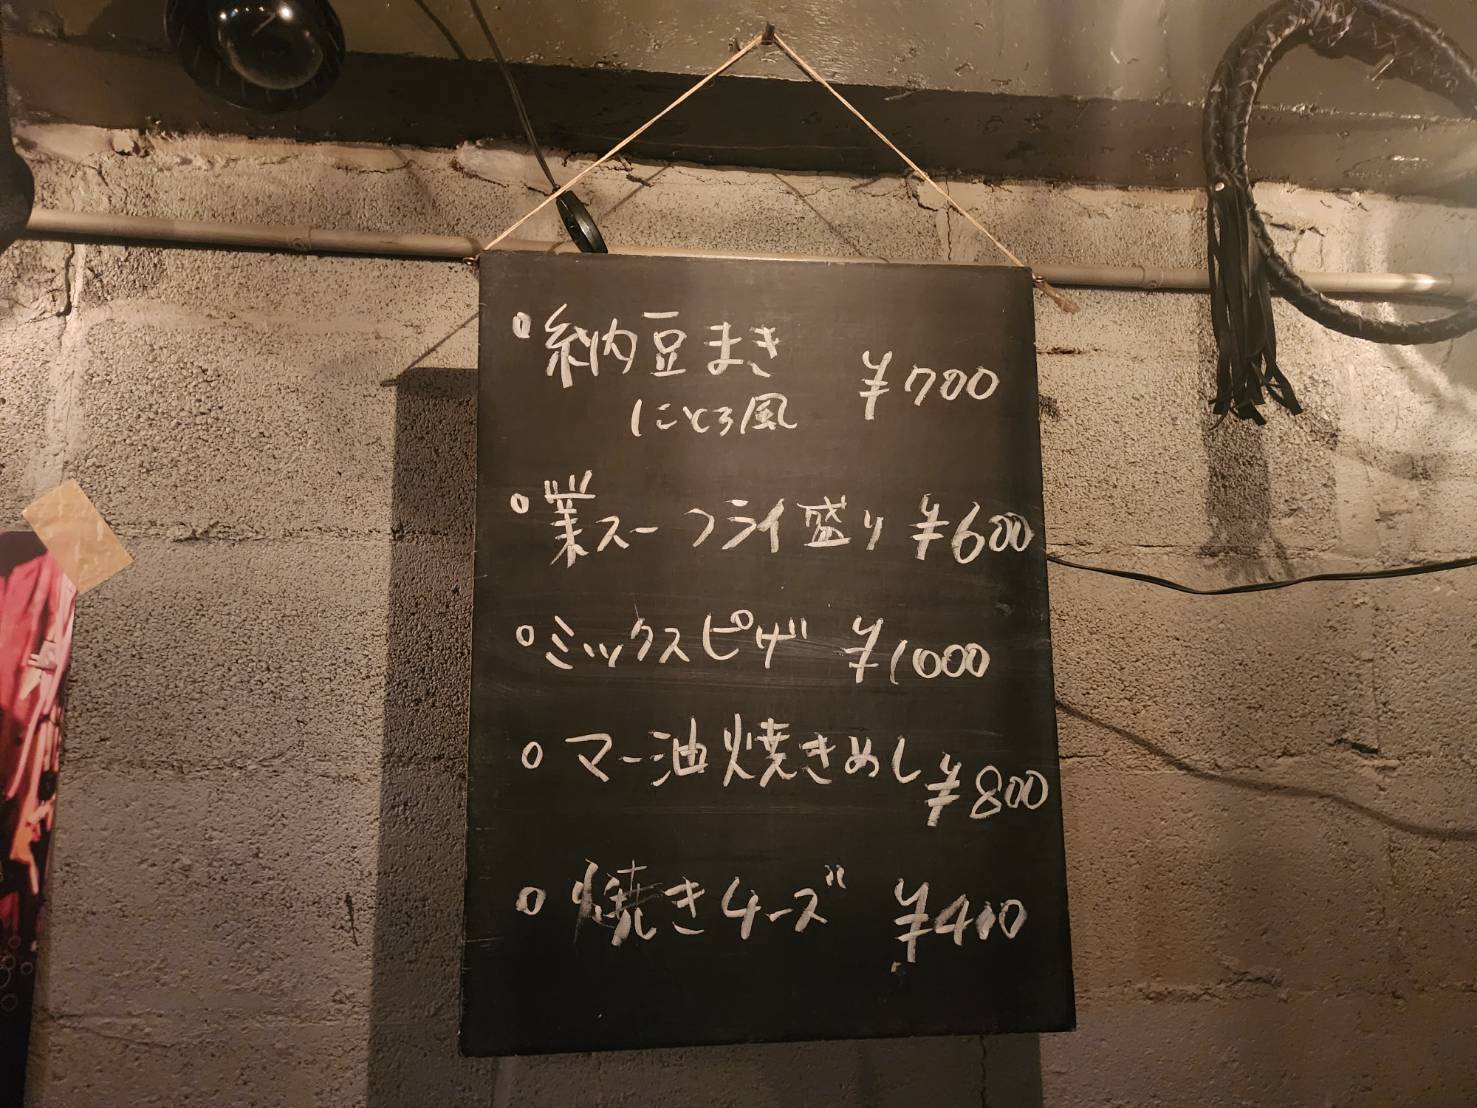 納豆まき ¥700
にとろ風
業スーフライ盛り ¥600
ミックスピザ ¥1000
マー油焼きめし ¥800
焼きチーズ ¥400